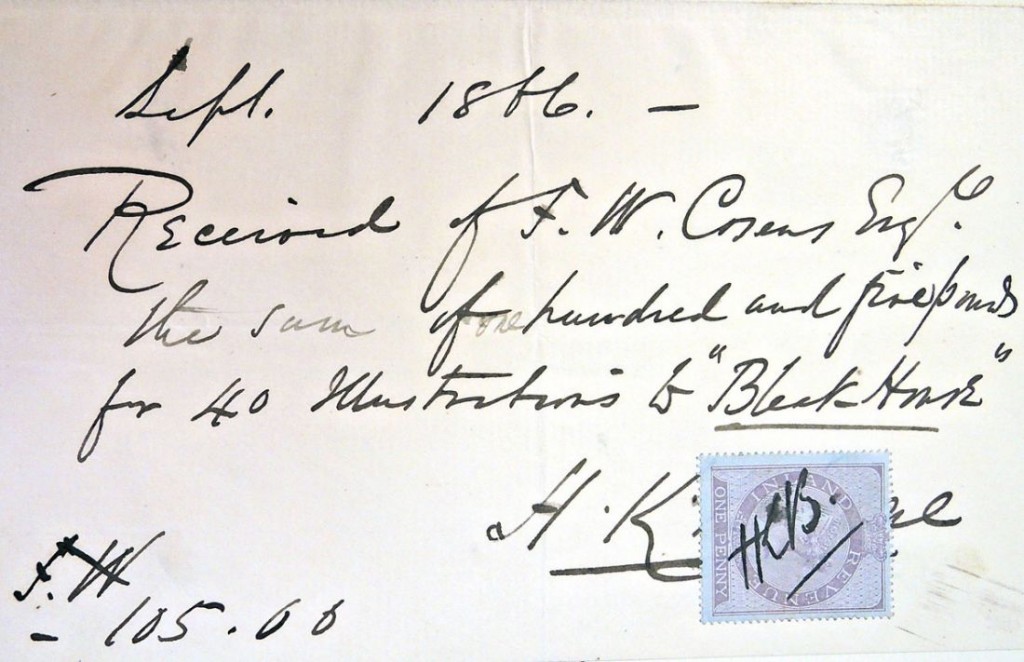 Sept. 1866. —
Received of F. W. Cosens Esqre.
the sum of one hundred and five pounds
for 40 Illustrations to "Bleak House"
H. K
ne
INLAND REVENUE
ONE PENNY
ONE PENNY
HKB.
F. W
- 105.00